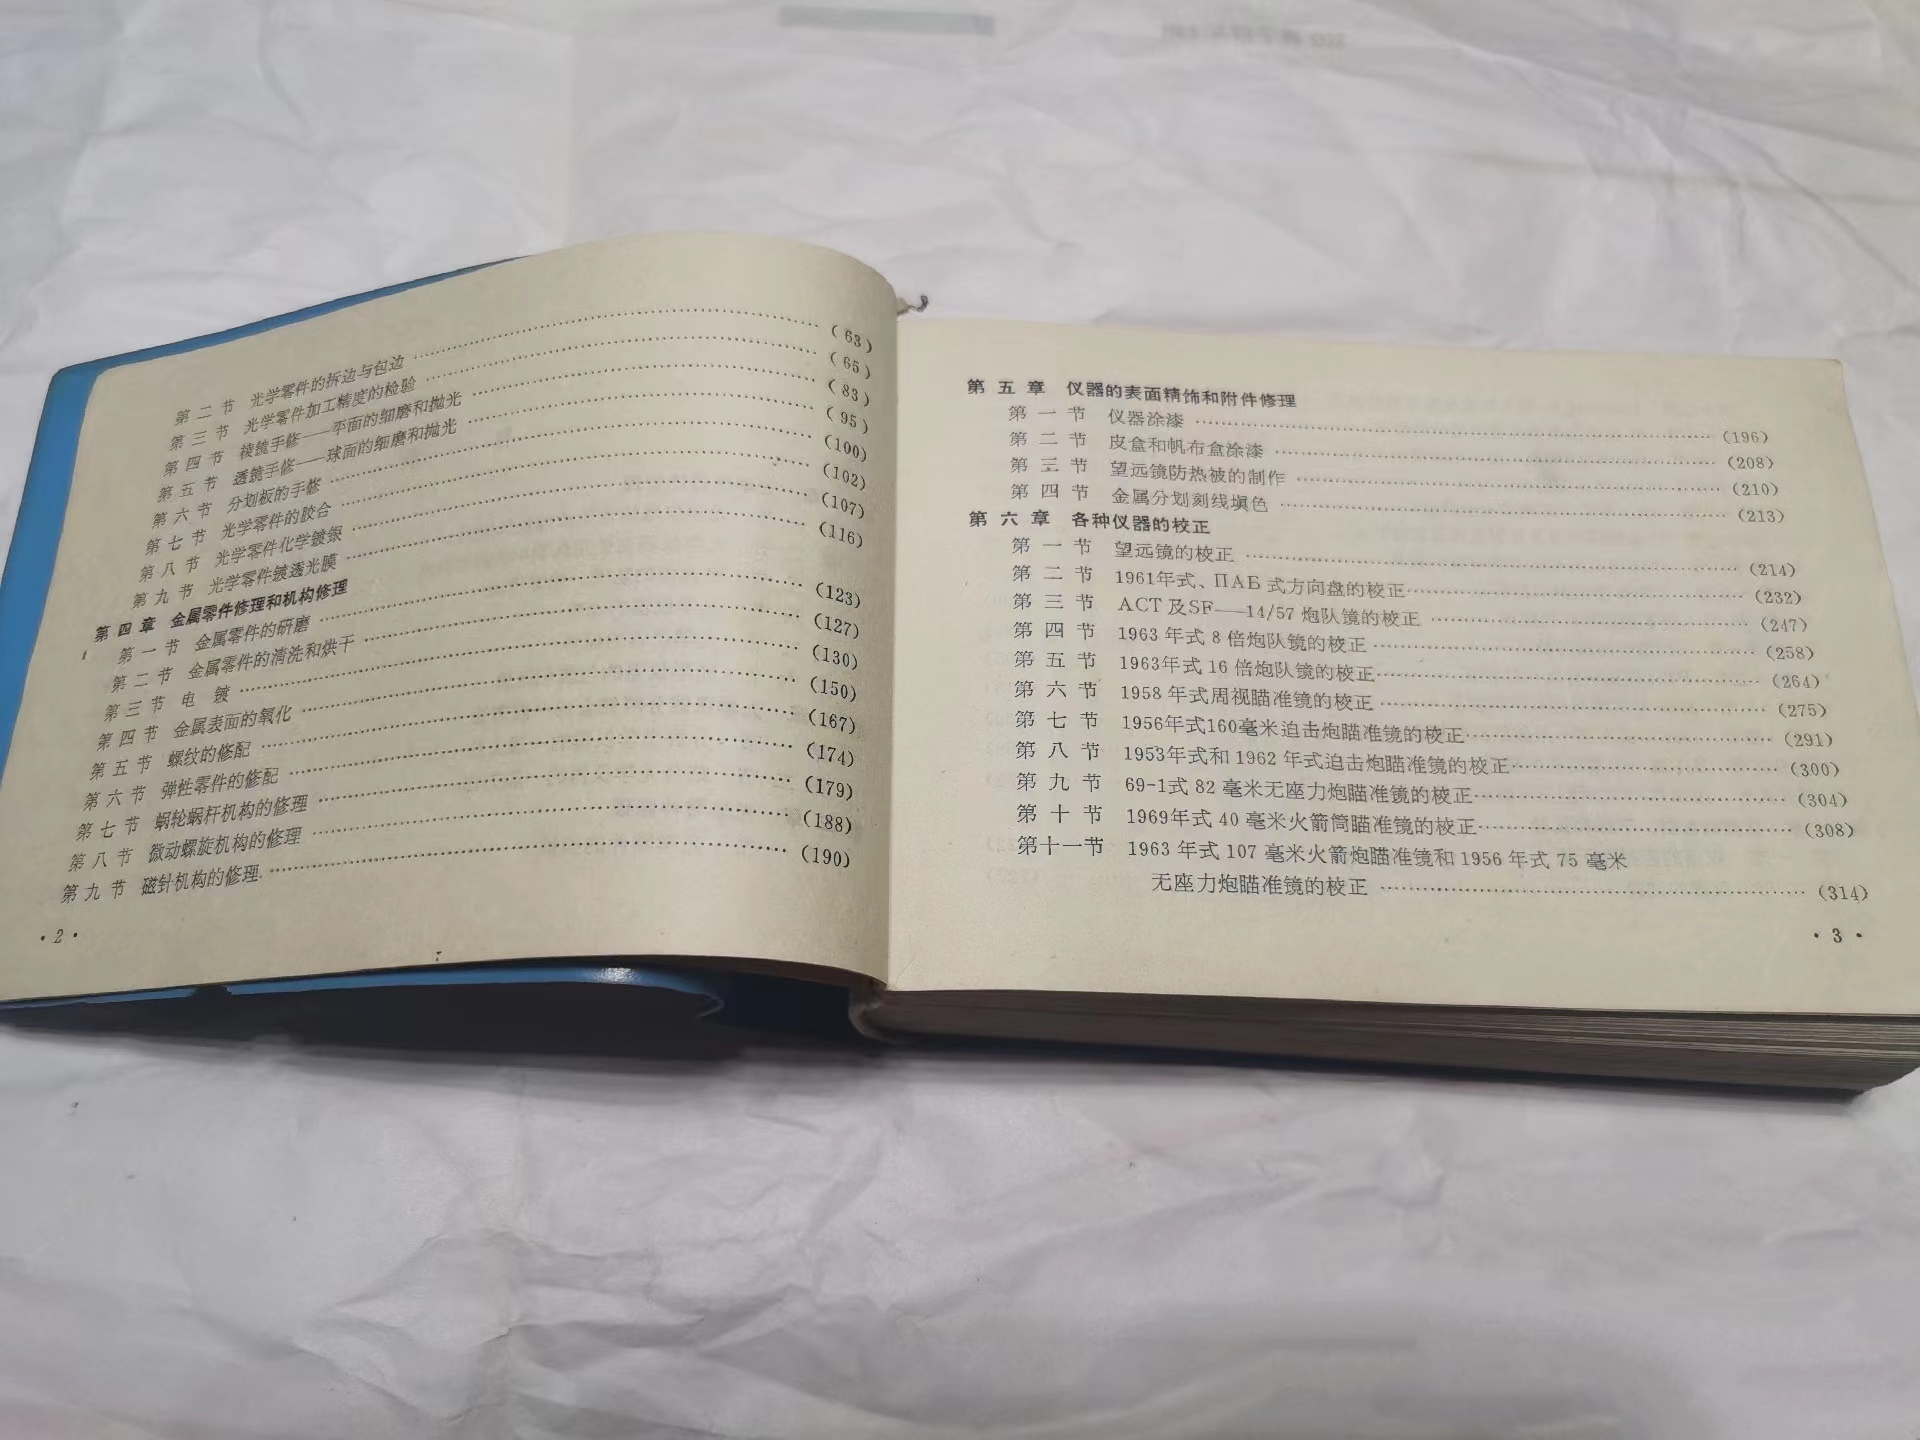 第二节 光学零件的拆边与包边……(63)
第三节 光学零件加工精度的检验……(65)
第四节 棱镜手修——平面的细磨和抛光……(83)
第五节 透镜手修——球面的细磨和抛光……(95)
第六节 分划板的手修……(100)
第七节 光学零件的胶合……(102)
第八节 光学零件化学镀银……(107)
第九节 光学零件镀透光膜……(116)
第四章 金属零件修理和机构修理
第一节 金属零件的研磨……(123)
第二节 金属零件的清洗和烘干……(127)
第三节 电 镀……(130)
第四节 金属表面的氧化……(150)
第五节 螺纹的修配……(167)
第六节 弹性零件的修配……(174)
第七节 蜗轮蜗杆机构的修理……(179)
第八节 微动螺旋机构的修理……(188)
第九节 磁针机构的修理……(190)
·2·
第五章 仪器的表面精饰和附件修理
第一节 仪器涂漆……(196)
第二节 皮盒和帆布盒涂漆……(208)
第三节 望远镜防热被的制作……(210)
第四节 金属分划刻线填色……(213)
第六章 各种仪器的校正
第一节 望远镜的校正……(214)
第二节 1961年式、ПАБ式方向盘的校正……(232)
第三节 АСТ及SF—14/57炮队镜的校正……(247)
第四节 1963年式8倍炮队镜的校正……(258)
第五节 1963年式16倍炮队镜的校正……(264)
第六节 1958年式周视瞄准镜的校正……(275)
第七节 1956年式160毫米迫击炮瞄准镜的校正……(291)
第八节 1953年式和1962年式迫击炮瞄准镜的校正……(300)
第九节 69-1式82毫米无座力炮瞄准镜的校正……(304)
第十节 1969年式40毫米火箭筒瞄准镜的校正……(308)
第十一节 1963年式107毫米火箭炮瞄准镜和1956年式75毫米
无座力炮瞄准镜的校正……(314)
·3·